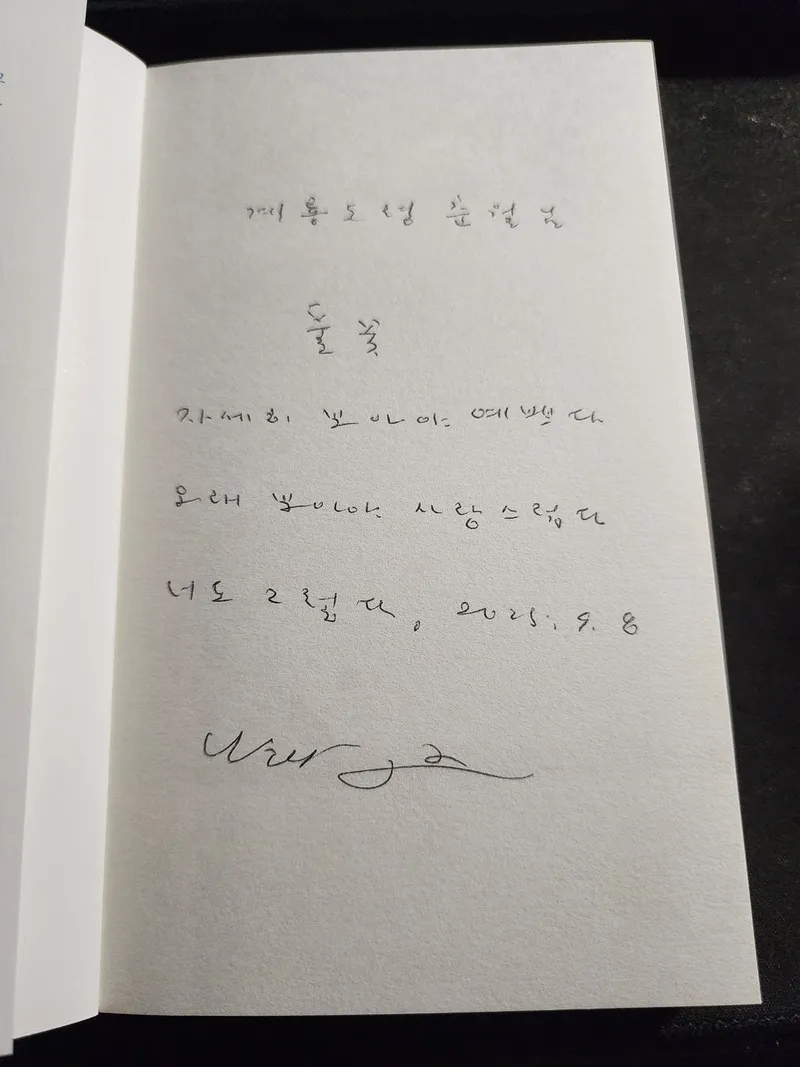 계룡도령 춘월님
풀꽃
자세히 보아야 예쁘다
오래 보아야 사랑스럽다
너도 그렇다. 2025. 9. 8
나태주